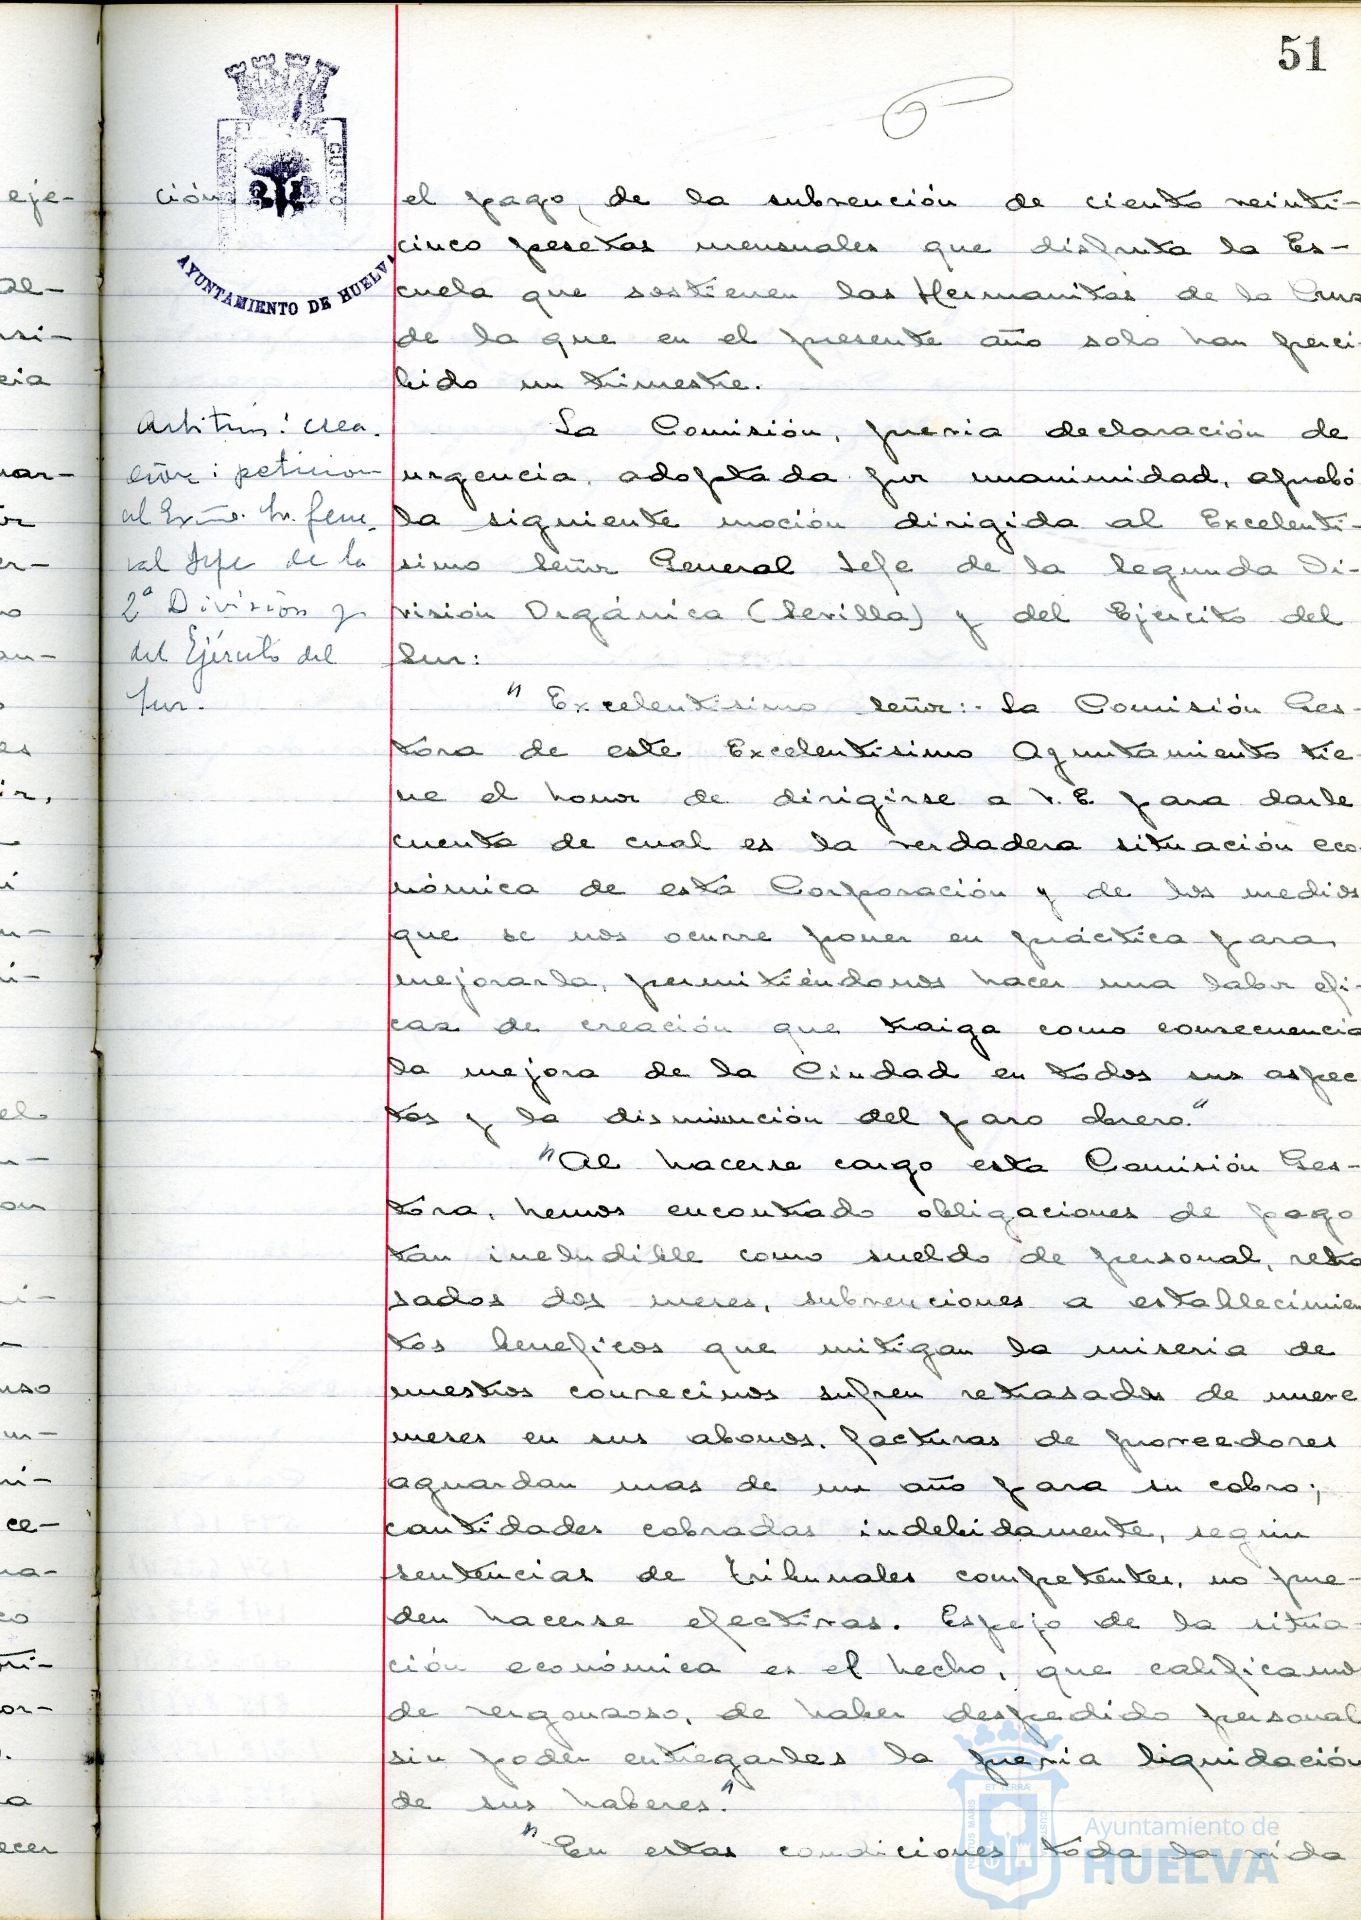 51
AYUNTAMIENTO DE HUELVA
ción
el pago, de la subvención de ciento veinti-
cinco pesetas mensuales que disfruta la Es-
cuela que sostienen las Hermanitas de la Cruz
de la que en el presente año solo han perci-
bido un trimestre.
Arbitrios: crea.
ción: peticion
al Excmo. Sr. Gene.
ral Jefe de la
2ª División y
del Ejército del
Sur.
La Comisión, previa declaración de
urgencia, adoptada por unanimidad, aprobó
la siguiente moción dirigida al Excelentí-
simo Señor General Jefe de la Segunda Di-
visión Orgánica (Sevilla) y del Ejército del
Sur:
"Excelentísimo señor:- La Comisión Ges-
tora de este Excelentísimo Ayuntamiento tie-
ne el honor de dirigirse a V.E. para darle
cuenta de cual es la verdadera situación eco-
nómica de está Corporación y de los medios
que se nos ocurre poner en práctica para
mejorarla, permitiéndonos hacer una labor efi-
caz de creación que traiga como consecuencia
la mejora de la Ciudad en todos sus aspec
tos y la disminución del paro obrero."
"Al hacerse cargo esta Comisión Ges-
tora, hemos encontrado obligaciones de pago
tan ineludible como sueldo de personal, retra
sados dos meses, subvenciones a establecimien
tos beneficos que mitigan la miseria de
nuestros convecinos sufren retrasados de nueve
meses en sus abonos, facturas de proveedores
aguardan mas de un año para su cobro;
cantidades cobradas indebidamente, según
sentencias de Tribunales competentes, no pue-
den hacerse efectivas. Espejo de la situa-
ción económica es el hecho, que calificamos
de vergonzoso, de haber despedido personal
sin poder entregarles la previa liquidación
de sus haberes."
"En estas condiciones toda la vida
PORTUS MARIS ET TERRÆ CUSTODIA
Ayuntamiento de
HUELVA
eje-
al-
rsi-
cia
nar-
er-
an-
es
ir,
el
on
uso
ce-
na-
co
or-
a
ecer